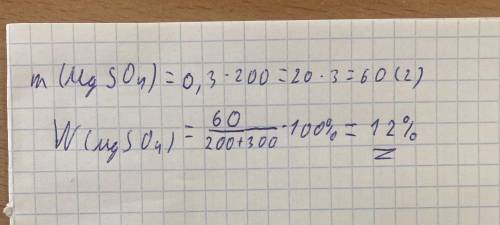 m(MgSO4) = 0,3·200 = 20·3 = 60(г)
W(MgSO4) = 60/(200+300)·100% = 12%